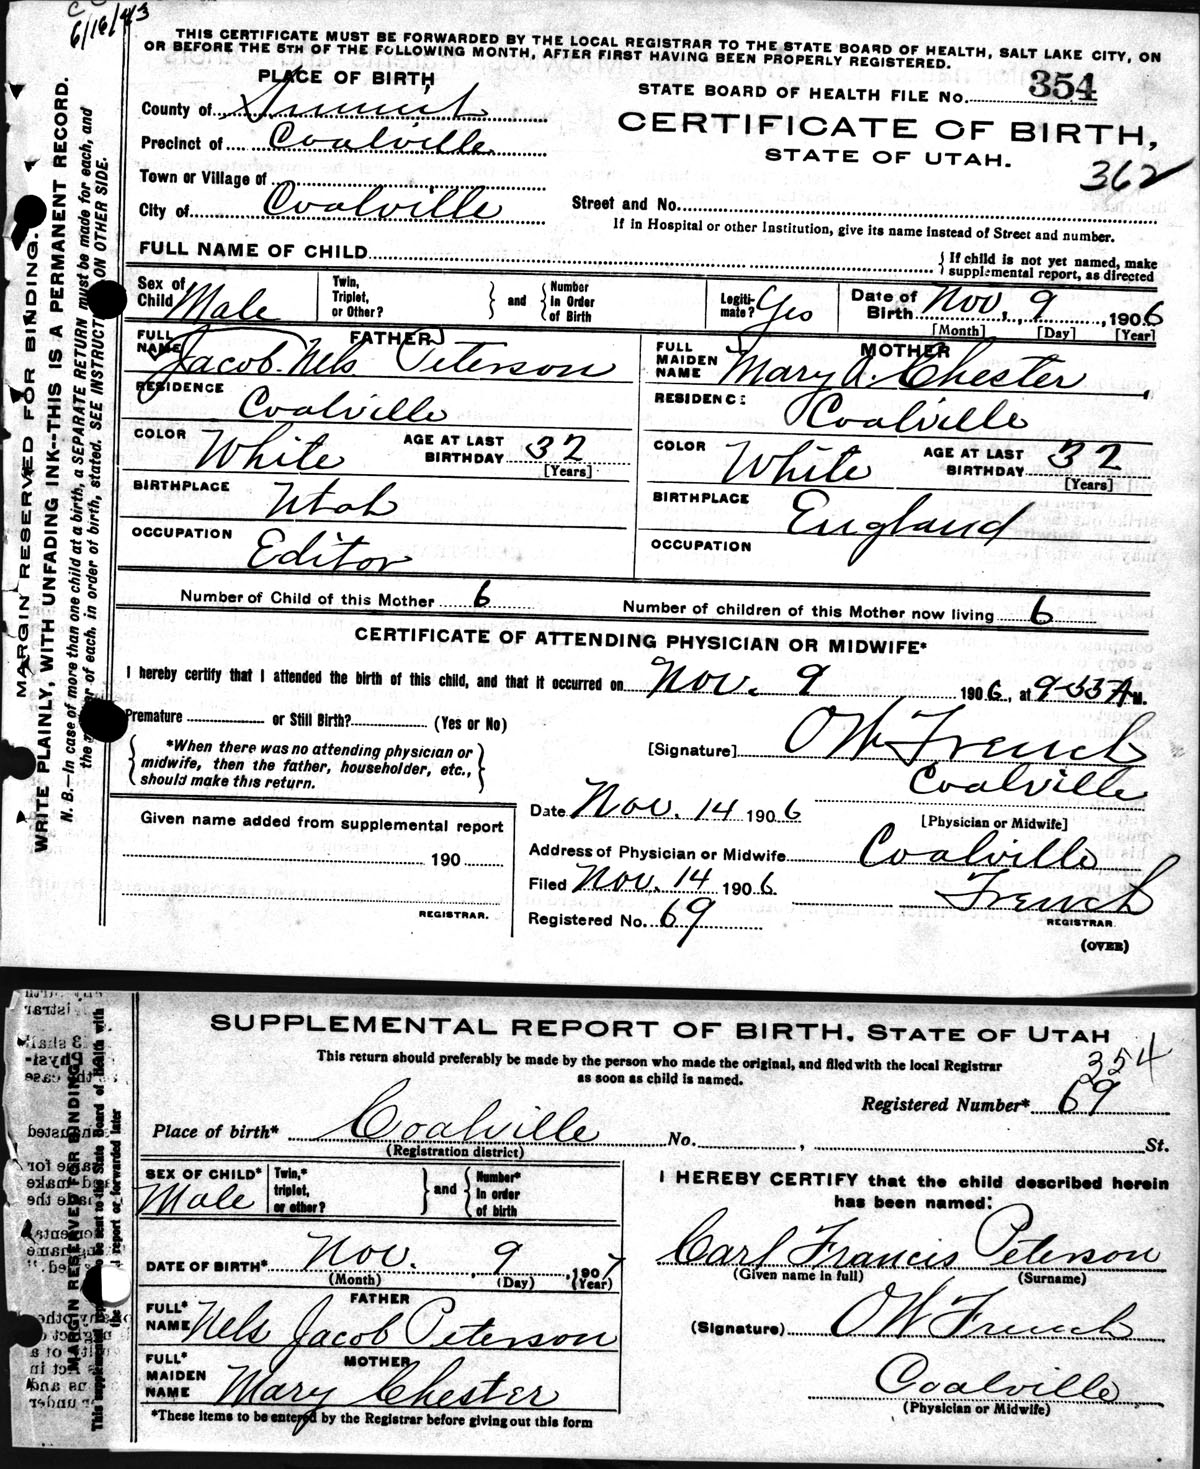 C C
6/16/43
THIS CERTIFICATE MUST BE FORWARDED BY THE LOCAL REGISTRAR TO THE STATE BOARD OF HEALTH, SALT LAKE CITY, ON
OR BEFORE THE 5TH OF THE FOLLOWING MONTH, AFTER FIRST HAVING BEEN PROPERLY REGISTERED.
PLACE OF BIRTH
County of Summit
Precinct of Coalville
Town or Village of
City of Coalville
STATE BOARD OF HEALTH FILE No. 354
CERTIFICATE OF BIRTH,
STATE OF UTAH.
362
Street and No.
If in Hospital or other Institution, give its name instead of Street and number.
FULL NAME OF CHILD
If child is not yet named, make
supplemental report, as directed
Sex of Child Male
Twin, Triplet, or Other?
and
Number in Order of Birth
Legitimate? Yes
Date of Birth Nov, 9, 1906
[Month] [Day] [Year]
FATHER
FULL NAME Jacob Nels Peterson
RESIDENCE Coalville
COLOR White AGE AT LAST BIRTHDAY 32
[Years]
BIRTHPLACE Utah
OCCUPATION Editor
MOTHER
FULL MAIDEN NAME Mary A. Chester
RESIDENCE Coalville
COLOR White AGE AT LAST BIRTHDAY 32
[Years]
BIRTHPLACE England
OCCUPATION
Number of Child of this Mother 6 Number of children of this Mother now living 6
CERTIFICATE OF ATTENDING PHYSICIAN OR MIDWIFE*
I hereby certify that I attended the birth of this child, and that it occurred on Nov. 9 1906, at 9-55 A M.
Premature or Still Birth? (Yes or No)
*When there was no attending physician or
midwife, then the father, householder, etc.,
should make this return.
[Signature] O W French
Coalville
Date Nov. 14 1906
[Physician or Midwife]
Address of Physician or Midwife Coalville
Filed Nov. 14 1906 French
REGISTRAR
Registered No. 69
(OVER)
Given name added from supplemental report
190
REGISTRAR.
MARGIN RESERVED FOR BINDING.
WRITE PLAINLY, WITH UNFADING INK--THIS IS A PERMANENT RECORD.
N. B.—In case of more than one child at a birth, a SEPARATE RETURN must be made for each, and
the of each, in order of birth, stated. SEE INSTRUCT ON OTHER SIDE.
SUPPLEMENTAL REPORT OF BIRTH, STATE OF UTAH
This return should preferably be made by the person who made the original, and filed with the local Registrar
as soon as child is named.
354
Registered Number* 69
Place of birth* Coalville No. , St.
(Registration district)
SEX OF CHILD* Male
Twin,* triplet, or other?
and
Number* in order of birth
DATE OF BIRTH* Nov. 9, 1907
(Month) (Day) (Year)
FATHER
FULL* NAME Nels Jacob Peterson
MOTHER
FULL* MAIDEN NAME Mary Chester
*These items to be entered by the Registrar before giving out this form
I HEREBY CERTIFY that the child described herein
has been named:
Carl Francis Peterson
(Given name in full) (Surname)
(Signature) O W French
Coalville
(Physician or Midwife)
MARGIN RESERVED FOR BINDING